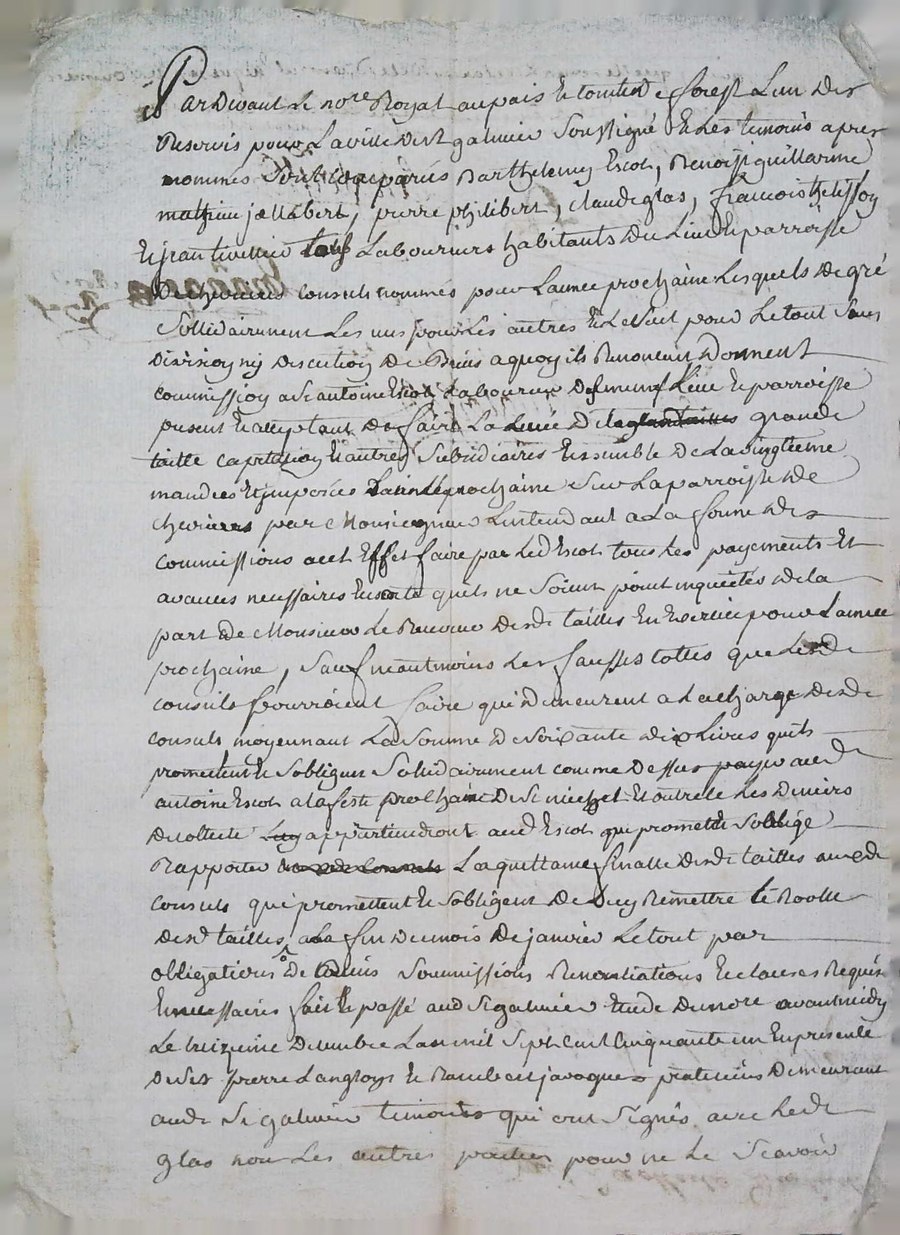 Pardevant Le no.re Royal au pais et Comté de forest L'un des
Reservés pour La ville de St galmier Soussigné Et Les temoins apres
nommés Sont comparus Barthelemy Escot, Benoist guillarme
mathieu jallabert, pierre philibert, claude glas, francois
Et jean tous Labouriers habitants du Lieu Et parroisse
De chevrieres consuls nommés pour L'année prochaine Lesquels de gré
Sollidairement Les uns pour Les autres Et Le Seul pour Le tout Sans
Division ny discution De Biens a quoy ils Renoncent Donnent
commission a Sr antoine Escot Laboureur Lieu Et parroisse
present Et acceptant De faire La Levée De grande
taille capitation Et autres Subsidiaires Ensemble De La vingtieme
mandées Et imposées L'année prochaine Sur La parroisse De
chevrieres par Monseigneur L'intendant a La forme Des
commissions a cet Effet faire par Led Escot tous Les payements Et
avances necessaires En sorte quils ne Soient point inquiétés De La
part De Monsieur Le Receveur Desd tailles En Exercice pour L'année
prochaine, Sauf neantmoins Les fausses cottes que Lesd
consuls pourroient faire qui Demeurent a La charge Desd
consuls moyennant La Somme De Soixante Dix Livres quils
promettent Et Sobligent Solidairement comme Dessus payer aud
antoine Escot a La feste prochaine De St michel Et outre ce Les Deniers
De collecte appartiendront aud Escot qui promet Et Soblige
Rapporter La quittance finalle Desd tailles auxd
consuls qui promettent Et Sobligent De Luy Remettre Le Roolle
Desd tailles a La fin Du mois De janvier Le tout par
obligations De Biens Soumissions Renontiations Et clauses Requises
Et necessaires fait Et passé aud St galmier Etude Du no.re avant midy
Le treizieme Decembre L'an mil Sept Cent Cinquante un En presence
De Srs pierre Langloys Et Rambert javogues praticiens Demeurant
aud St galmier temoins qui ont Signés avec Led
glas non Les autres parties pour ne Le Scavoir